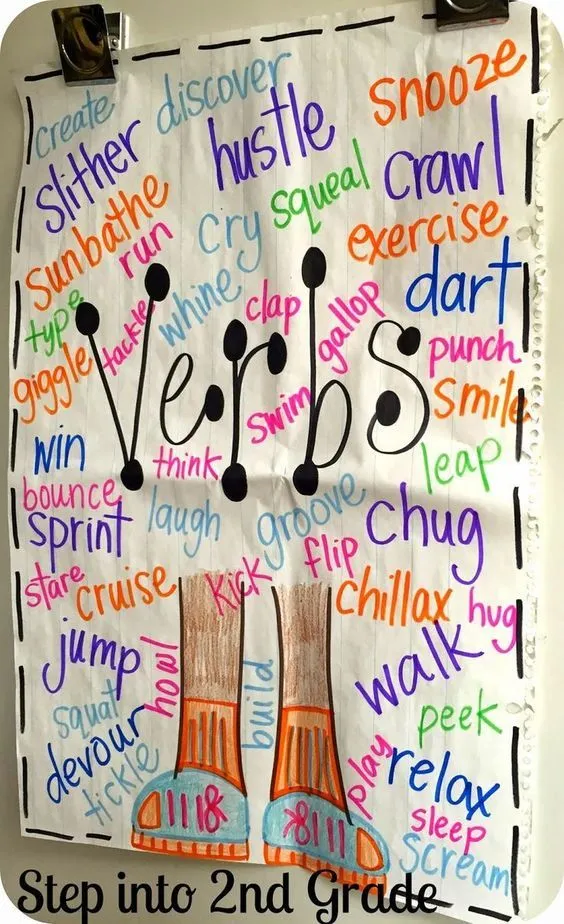 create
discover
snooze
slither
hustle
crawl
squeal
sunbathe
run
cry
exercise
type
tackle
whine
clap
gallop
dart
giggle
Verbs
punch
swim
smile
win
think
leap
bounce
laugh
groove
chug
sprint
stare
cruise
kick
flip
chillax
hug
jump
howl
build
walk
squat
peek
devour
play
relax
tickle
sleep
scream
Step into 2nd Grade